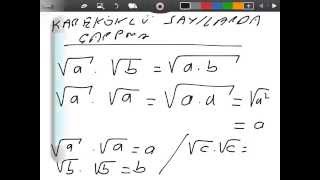 KAREKÖKLÜ SAYILARDA
ÇARPMA
√a . √b = √a.b
√a . √a = √a.a = √a²
= a
√a . √a = a / √c . √c =
√b . √b = b